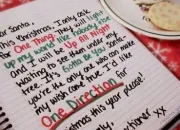 Dear Santa,
This Christmas, I only ask for
One Thing. They will light
up my world like nobody else
and I will be Up All Night
waiting to see them under my
tree. It's Gotta Be You santa
you're the only one who can make
my wish come true. I'd like
One Direction for
Christmas this year please!
xx